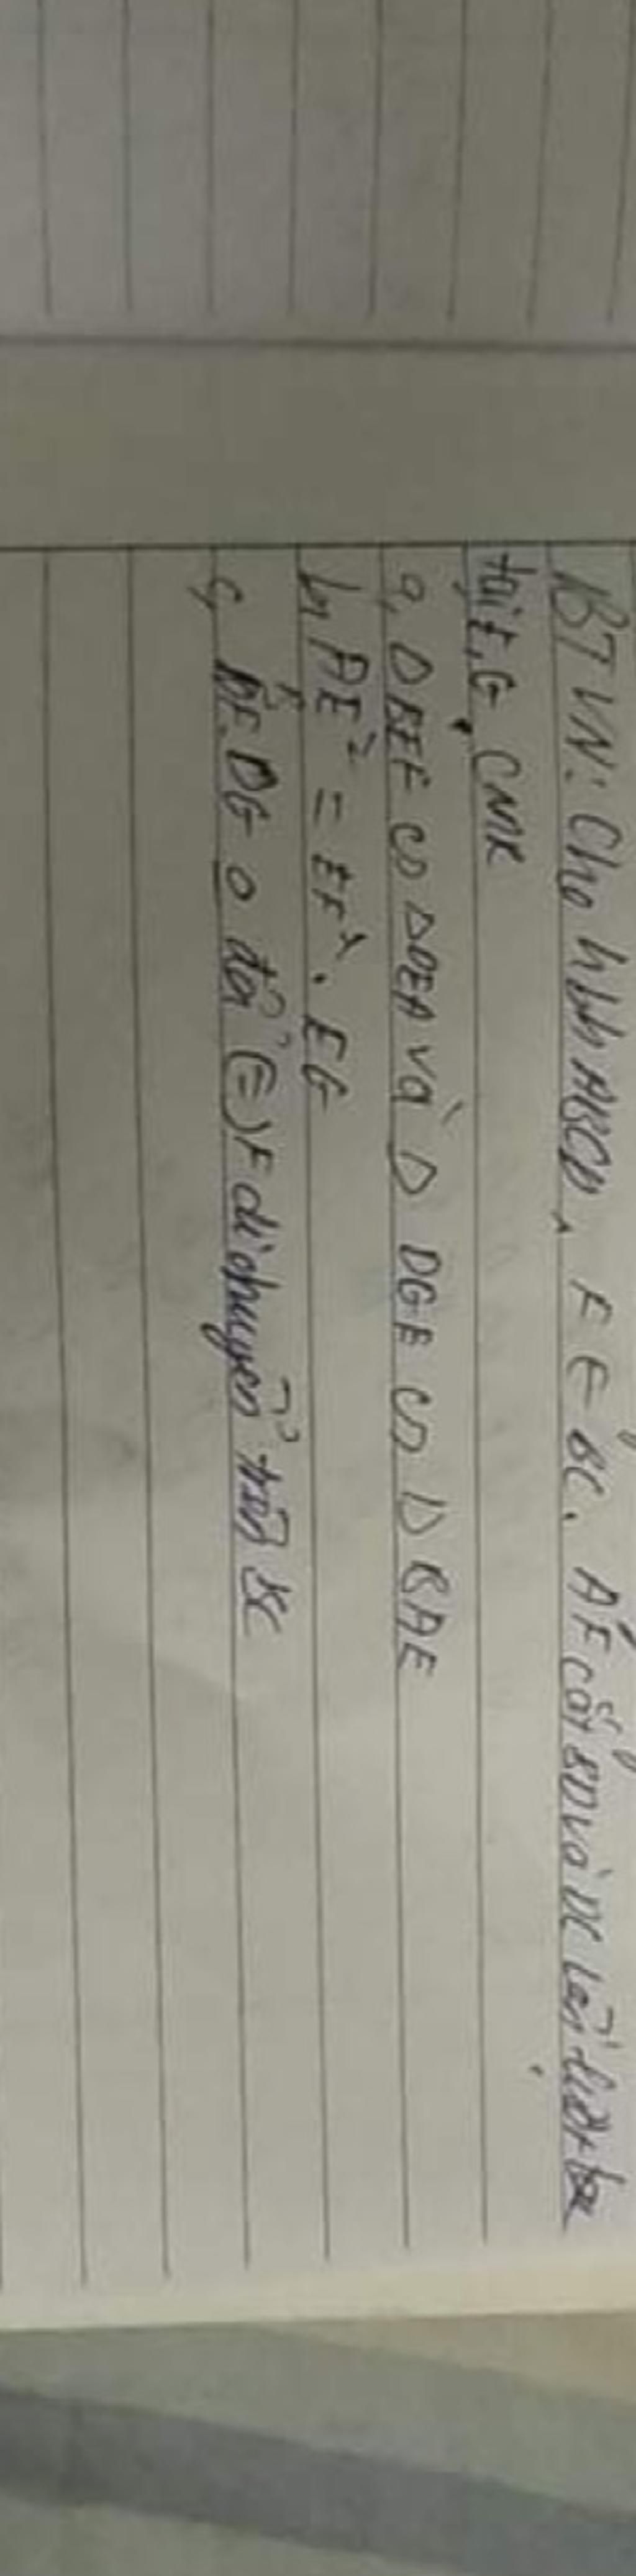 BTVN: Cho hbh ABCD, F ∈ BC. AF cắt BD và DC lần lượt
tại E, G. CMR
a, Δ BEF ∽ Δ DEA và Δ DGE ∽ Δ BAE
b, AE² = EF . EG
c, BF. DG o đổi (=) F di chuyển trên BC